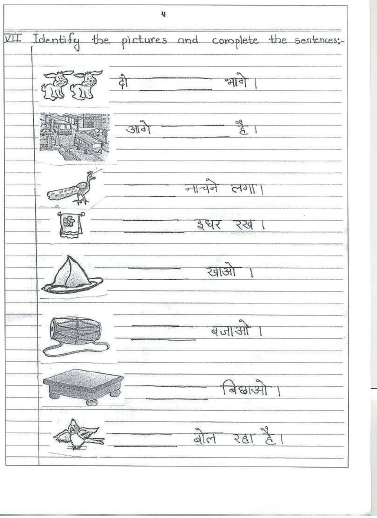 4
VII Identify the pictures and complete the sentences:-
दो ________ भागे ।
आगे ________ है ।
________ नाचने लगा ।
________ इधर रख ।
________ खाओ ।
________ बजाओ ।
________ बिछाओ ।
________ बोल रहा है ।